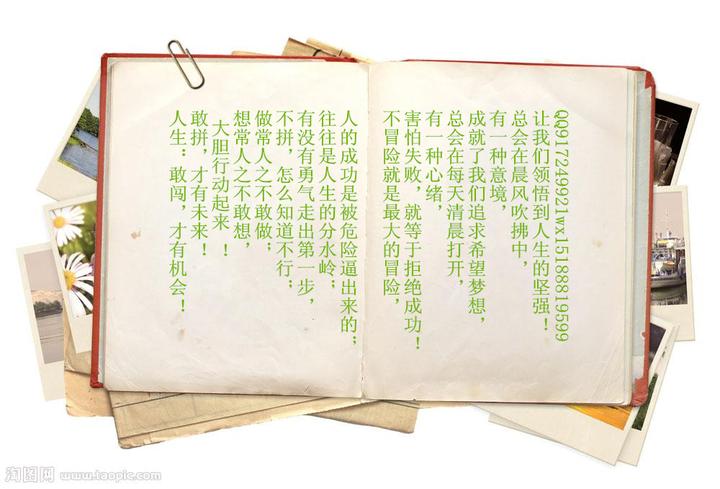 人生：敢闯，才有机会！
敢拼，才有未来！
大胆行动起来！
想常人之不敢想，
做常人之不敢做；
不拼，怎么知道不行；
有没有勇气走出第一步，
往往是人生的分水岭；
人的成功是被危险逼出来的；
不冒险就是最大的冒险，
害怕失败，就等于拒绝成功！
有一种心绪，
总会在每天清晨打开，
成就了我们追求希望梦想，
有一种意境，
总会在晨风吹拂中，
让我们领悟到人生的坚强！
QQ917249921wx15188819599
淘图网 www.taopic.com